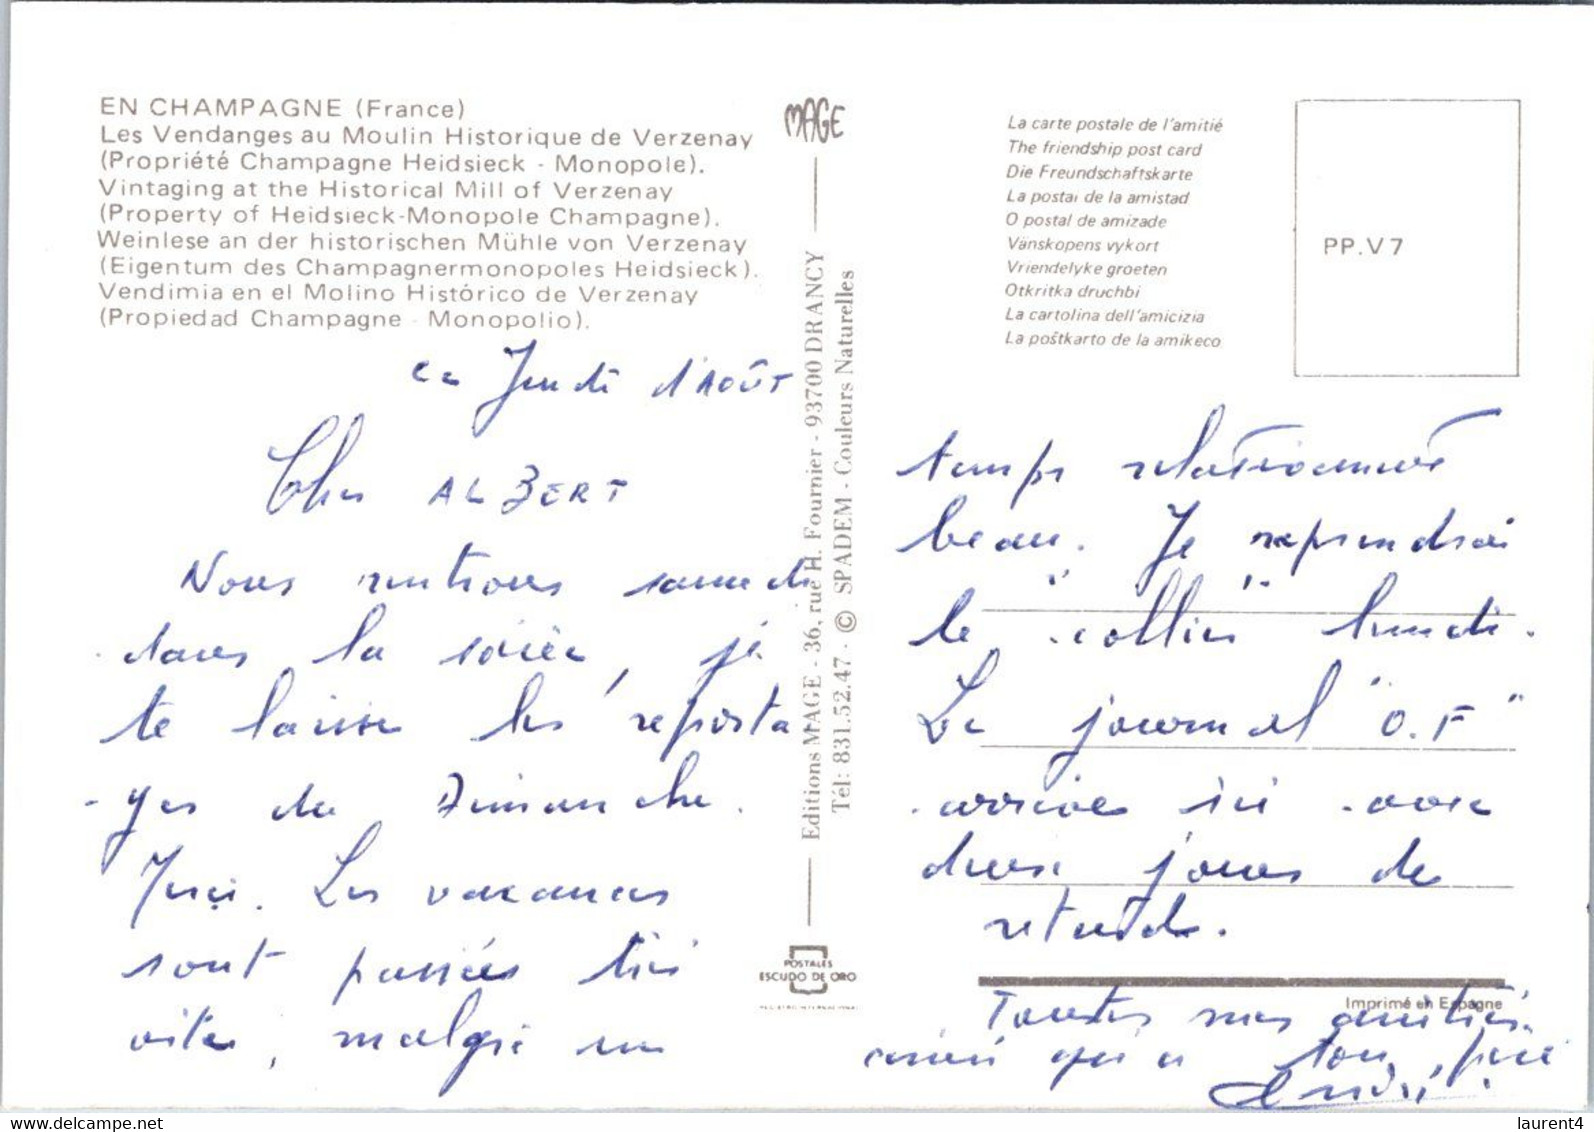 EN CHAMPAGNE (France)
Les Vendanges au Moulin Historique de Verzenay
(Propriété Champagne Heidsieck - Monopole).
Vintaging at the Historical Mill of Verzenay
(Property of Heidsieck-Monopole Champagne).
Weinlese an der historischen Mühle von Verzenay
(Eigentum des Champagnermonopoles Heidsieck).
Vendimia en el Molino Histórico de Verzenay
(Propiedad Champagne - Monopolio).
ce Jeudi d'AOÛT
Cher ALBERT
Nous rentrons samedi
dans la soirée, je
te laisse les reporta
ges du Dimanche.
Merci. Les vacances
sont passées très
vite, malgré un
MAGE
Editions MAGE - 36, rue H. Fournier - 93700 DRANCY
Tél: 831.52.47 - © SPADEM - Couleurs Naturelles
POSTALES
ESCUDO DE ORO
La carte postale de l'amitié
The friendship post card
Die Freundschaftskarte
La postal de la amistad
O postal de amizade
Vänskopens vykort
Vriendelyke groeten
Otkritka druchbi
La cartolina dell'amicizia
La poŝtkarto de la amikeco
PP.V 7
temps relativement
beau. Je reprendrai
le "collier" lundi.
Le journal "O.F"
arrive ici avec
deux jours de
retard.
Imprimé en Espagne
Toutes mes amitiés
ainsi qu'à ton père
André
delcampe.net
laurent4